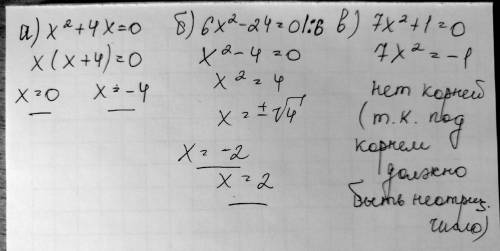 а) x²+4x=0
x(x+4)=0
x=0 x=-4
б) 6x²-24=0 |:6
x²-4=0
x²=4
x=±√4
x=-2
x=2
в) 7x²+1=0
7x²=-1
нет корней
(т.к. под
корнем
должно
быть неотриц.
число)